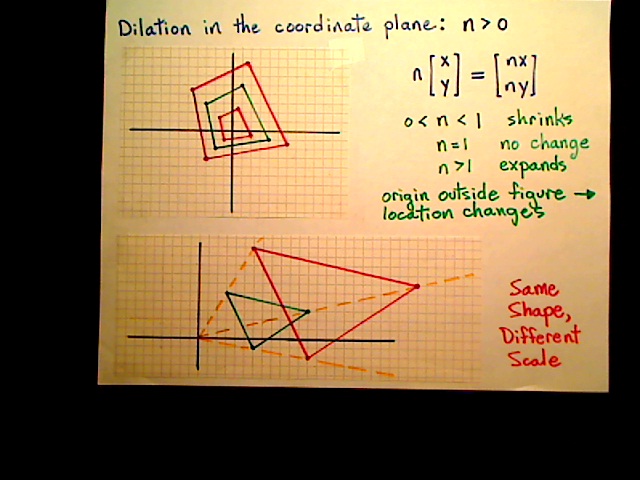 Dilation in the coordinate plane: n > 0
n [x y] = [nx ny]
0 < n < 1 shrinks
n = 1 no change
n > 1 expands
origin outside figure →
location changes
Same
Shape,
Different
Scale